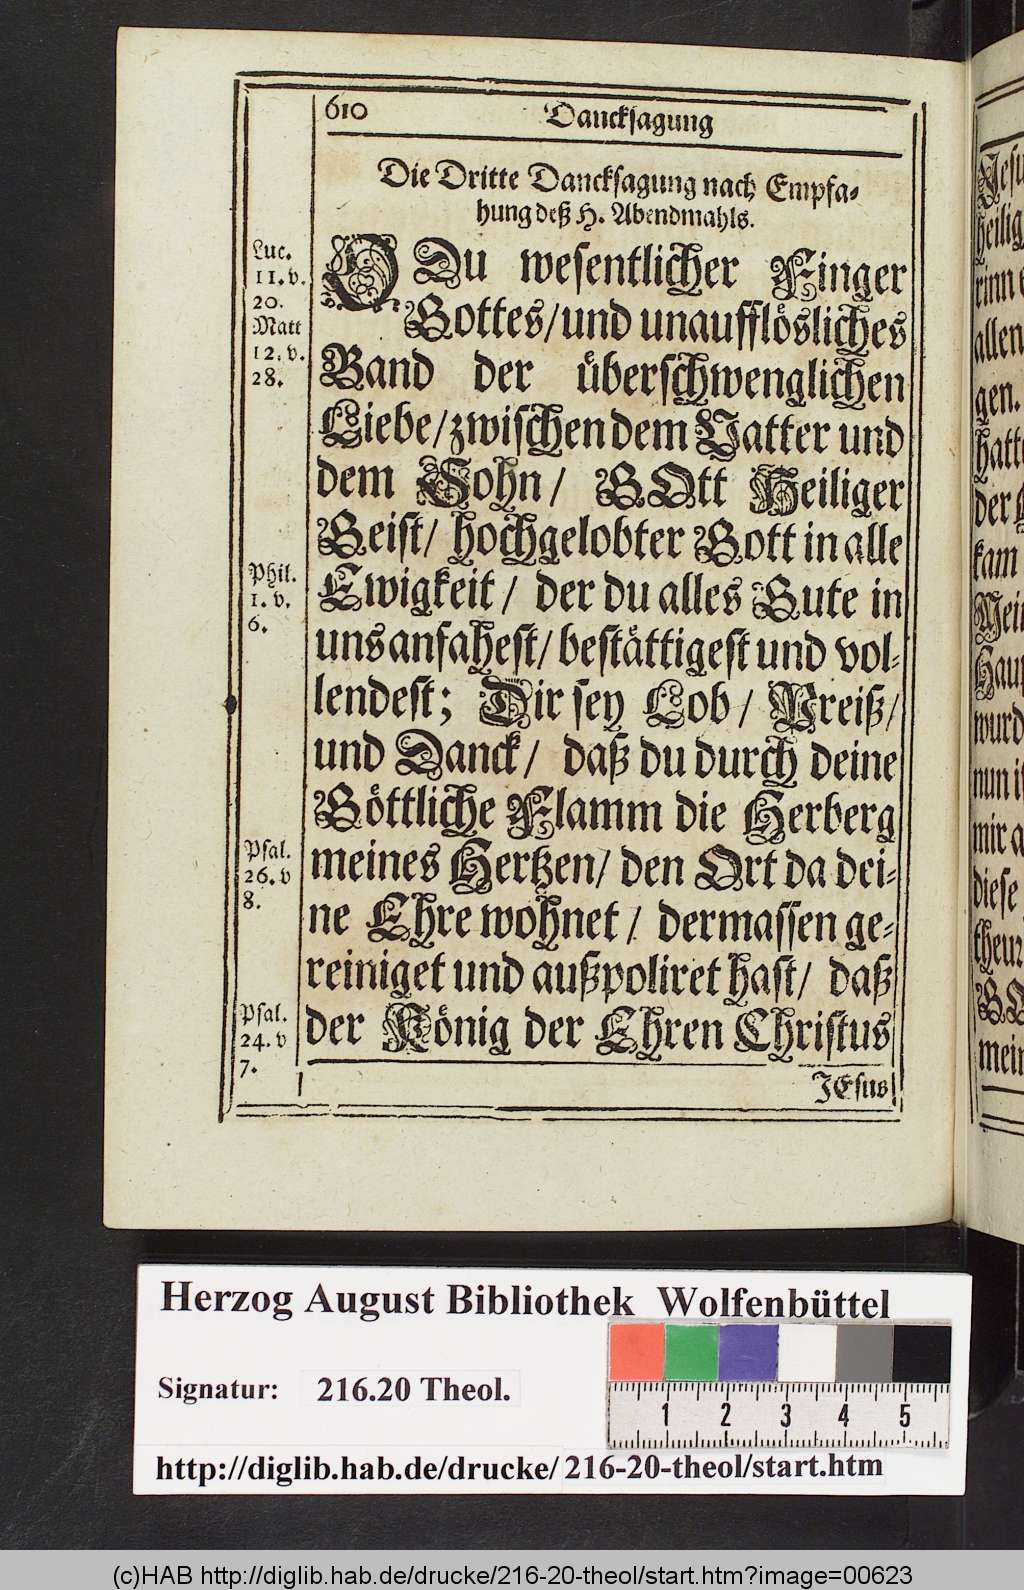 610 Dancksagung
Die Dritte Dancksagung nach Empfa-
hung deß H. Abendmahls.
Luc.
11. v.
20.
Matt
12. v.
28.
O Du wesentlicher Finger
Gottes/ und unaufflösliches
Band der überschwenglichen
Liebe/ zwischen dem Vatter und
dem Sohn/ GOtt Heiliger
Geist/ hochgelobter Gott in alle
Phil.
1. v.
6.
Ewigkeit/ der du alles Gute in
uns anfahest/ bestättigest und vol-
lendest; Dir sey Lob/ Preiß/
und Danck/ daß du durch deine
Göttliche Flamm die Herberg
Psal.
26. v
8.
meines Hertzen/ den Ort da dei-
ne Ehre wohnet/ dermassen ge-
reiniget und außpoliret hast/ daß
Psal.
24. v
7.
der König der Ehren Christus
JEsus
Herzog August Bibliothek Wolfenbüttel
Signatur: 216.20 Theol.
1 2 3 4 5
http://diglib.hab.de/drucke/ 216-20-theol/start.htm
(c)HAB http://diglib.hab.de/drucke/216-20-theol/start.htm?image=00623